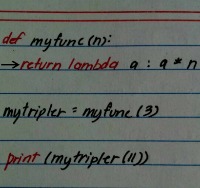 def myfunc(n):
→return lambda a : a * n
mytripler = myfunc(3)
print(mytripler(11))